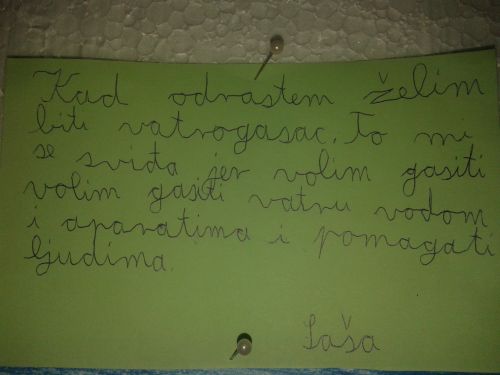 Kad odrastem želim
biti vatrogasac. To mi
se sviđa jer volim gasiti
volim gasiti vatru vodom
i aparatima i pomagati
ljudima.
Saša